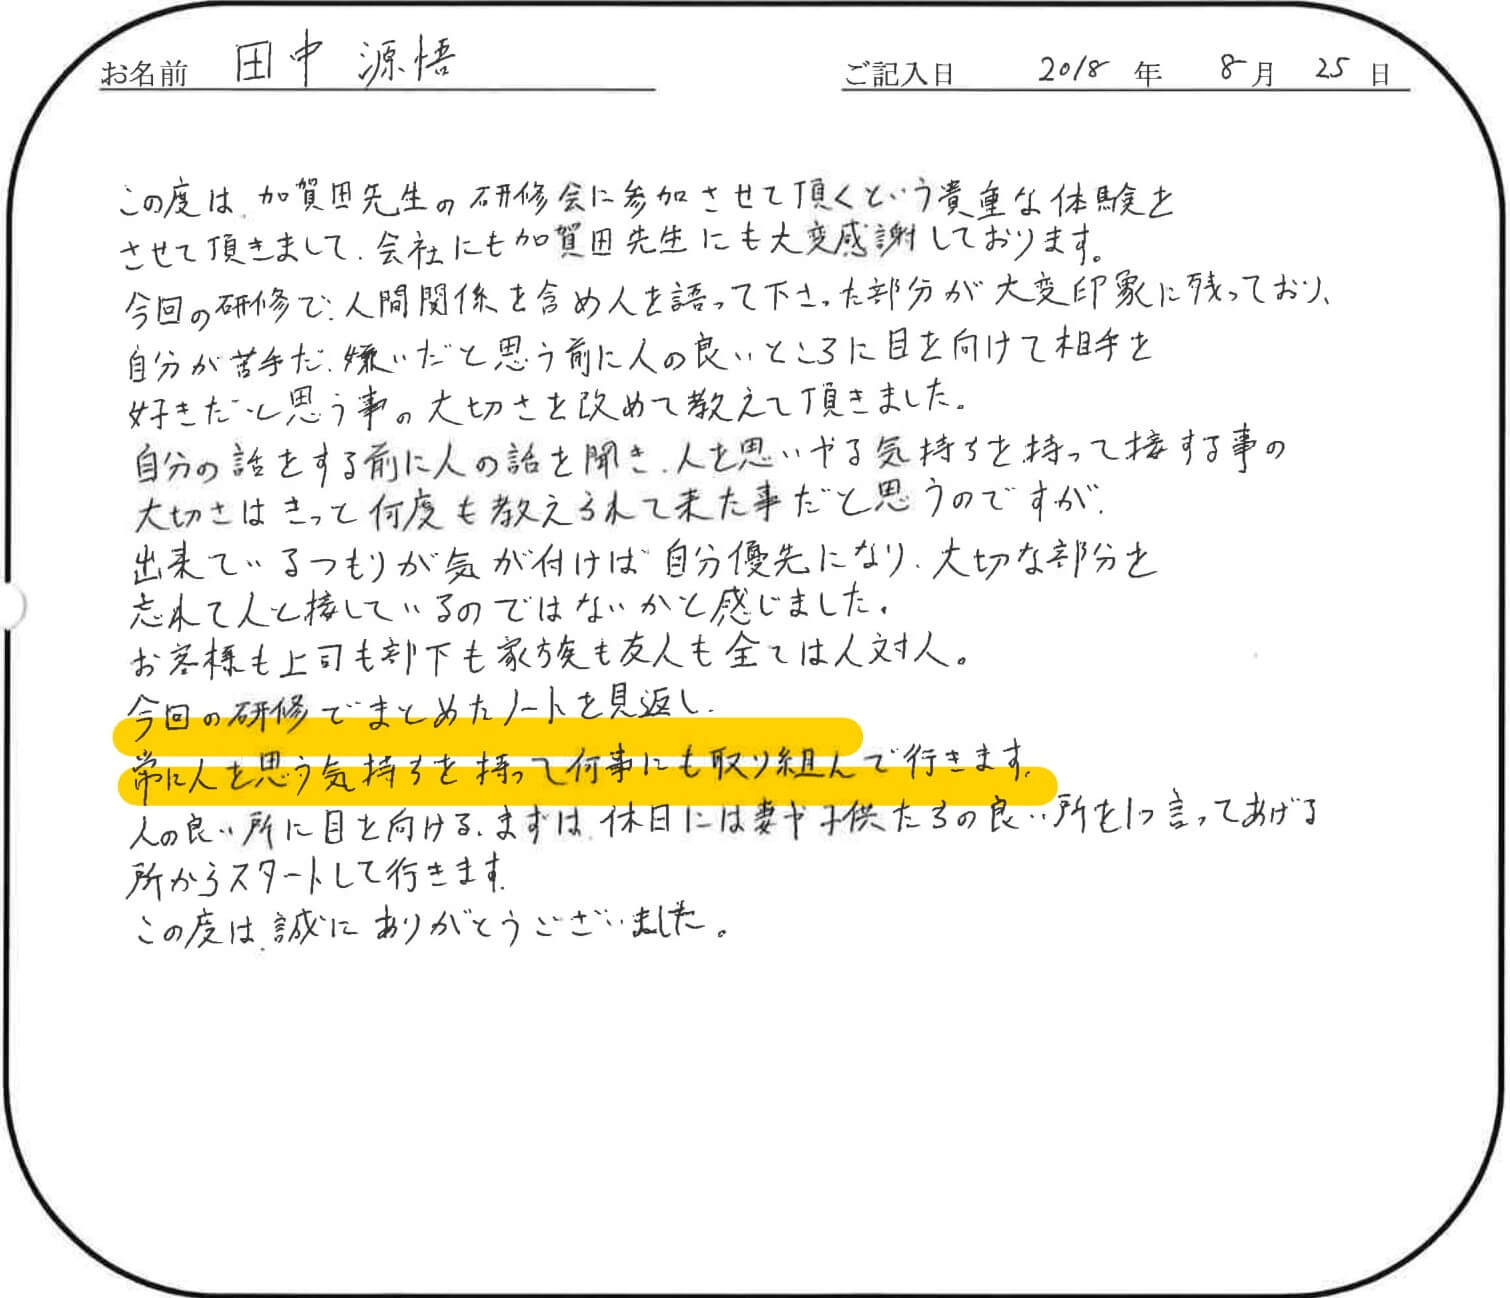 お名前 田中 源悟 ご記入日 2018年 8月 25日
この度は、加賀田先生の研修会に参加させて頂くという貴重な体験を
させて頂きまして、会社にも加賀田先生にも大変感謝しております。
今回の研修で、人間関係を含め人を語って下さった部分が大変印象に残っており、
自分が苦手だ、嫌いだと思う前に人の良いところに目を向けて相手を
好きだと思う事の大切さを改めて教えて頂きました。
自分の話をする前に人の話を聞き、人を思いやる気持ちを持って接する事の
大切さはきっと何度も教えられて来た事だと思うのですが、
出来ているつもりが気が付けば自分優先になり、大切な部分を
忘れて人と接しているのではないかと感じました。
お客様も上司も部下も家族も友人も全ては人対人。
今回の研修でまとめたノートを見返し、
常に人を思う気持ちを持って何事にも取り組んで行きます。
人の良い所に目を向ける、まずは、休日には妻や子供たちの良い所を1つ言ってあげる
所からスタートして行きます。
この度は、誠にありがとうございました。